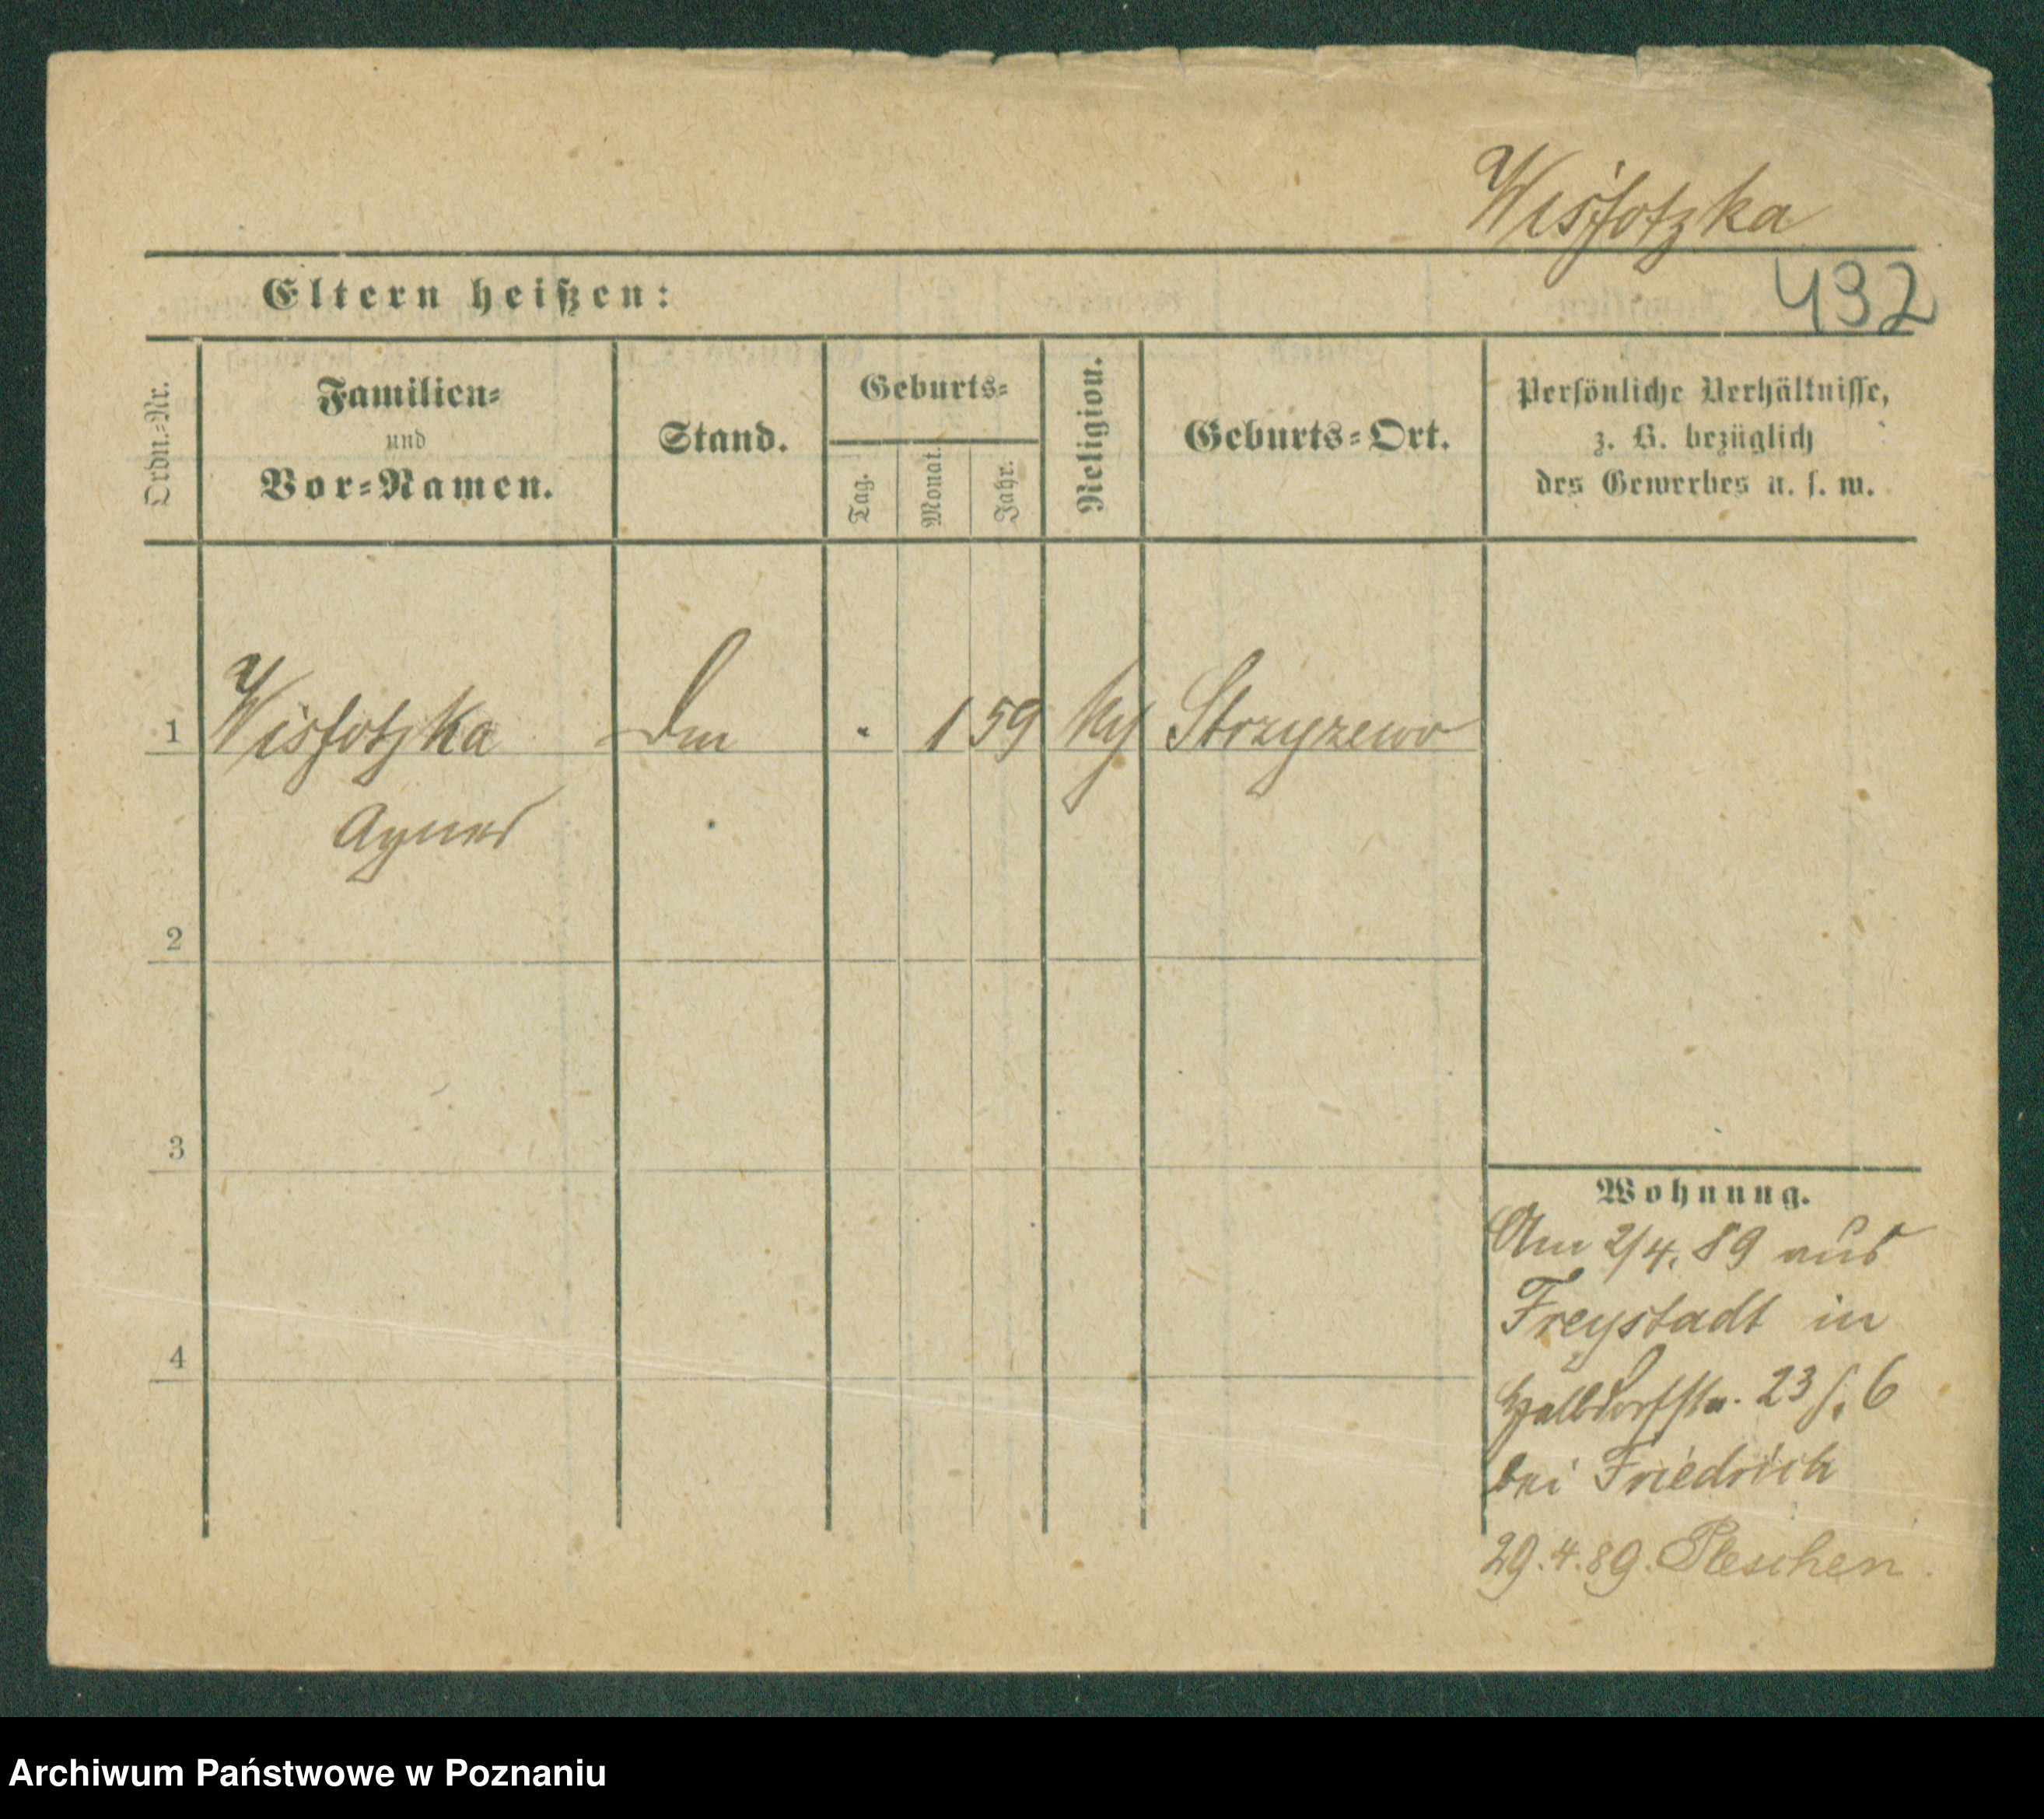 Wisſotzka
Eltern heißen:
432
Ordn.-Nr.
Familien-
und
Vor-Namen.
Stand.
Geburts-
Tag.
Monat.
Jahr.
Religion.
Geburts-Ort.
Persönliche Verhältnisse,
z. B. bezüglich
des Gewerbes u. s. w.
1 Wisſotzka 1 59 Strzyzewo
Agnes
2
3
4
Wohnung.
Am 2/4. 89 aus
Freystadt in
Halbdorfstr. 23 6
bei Friedrich
29.4.89. Pleschen
Archiwum Państwowe w Poznaniu